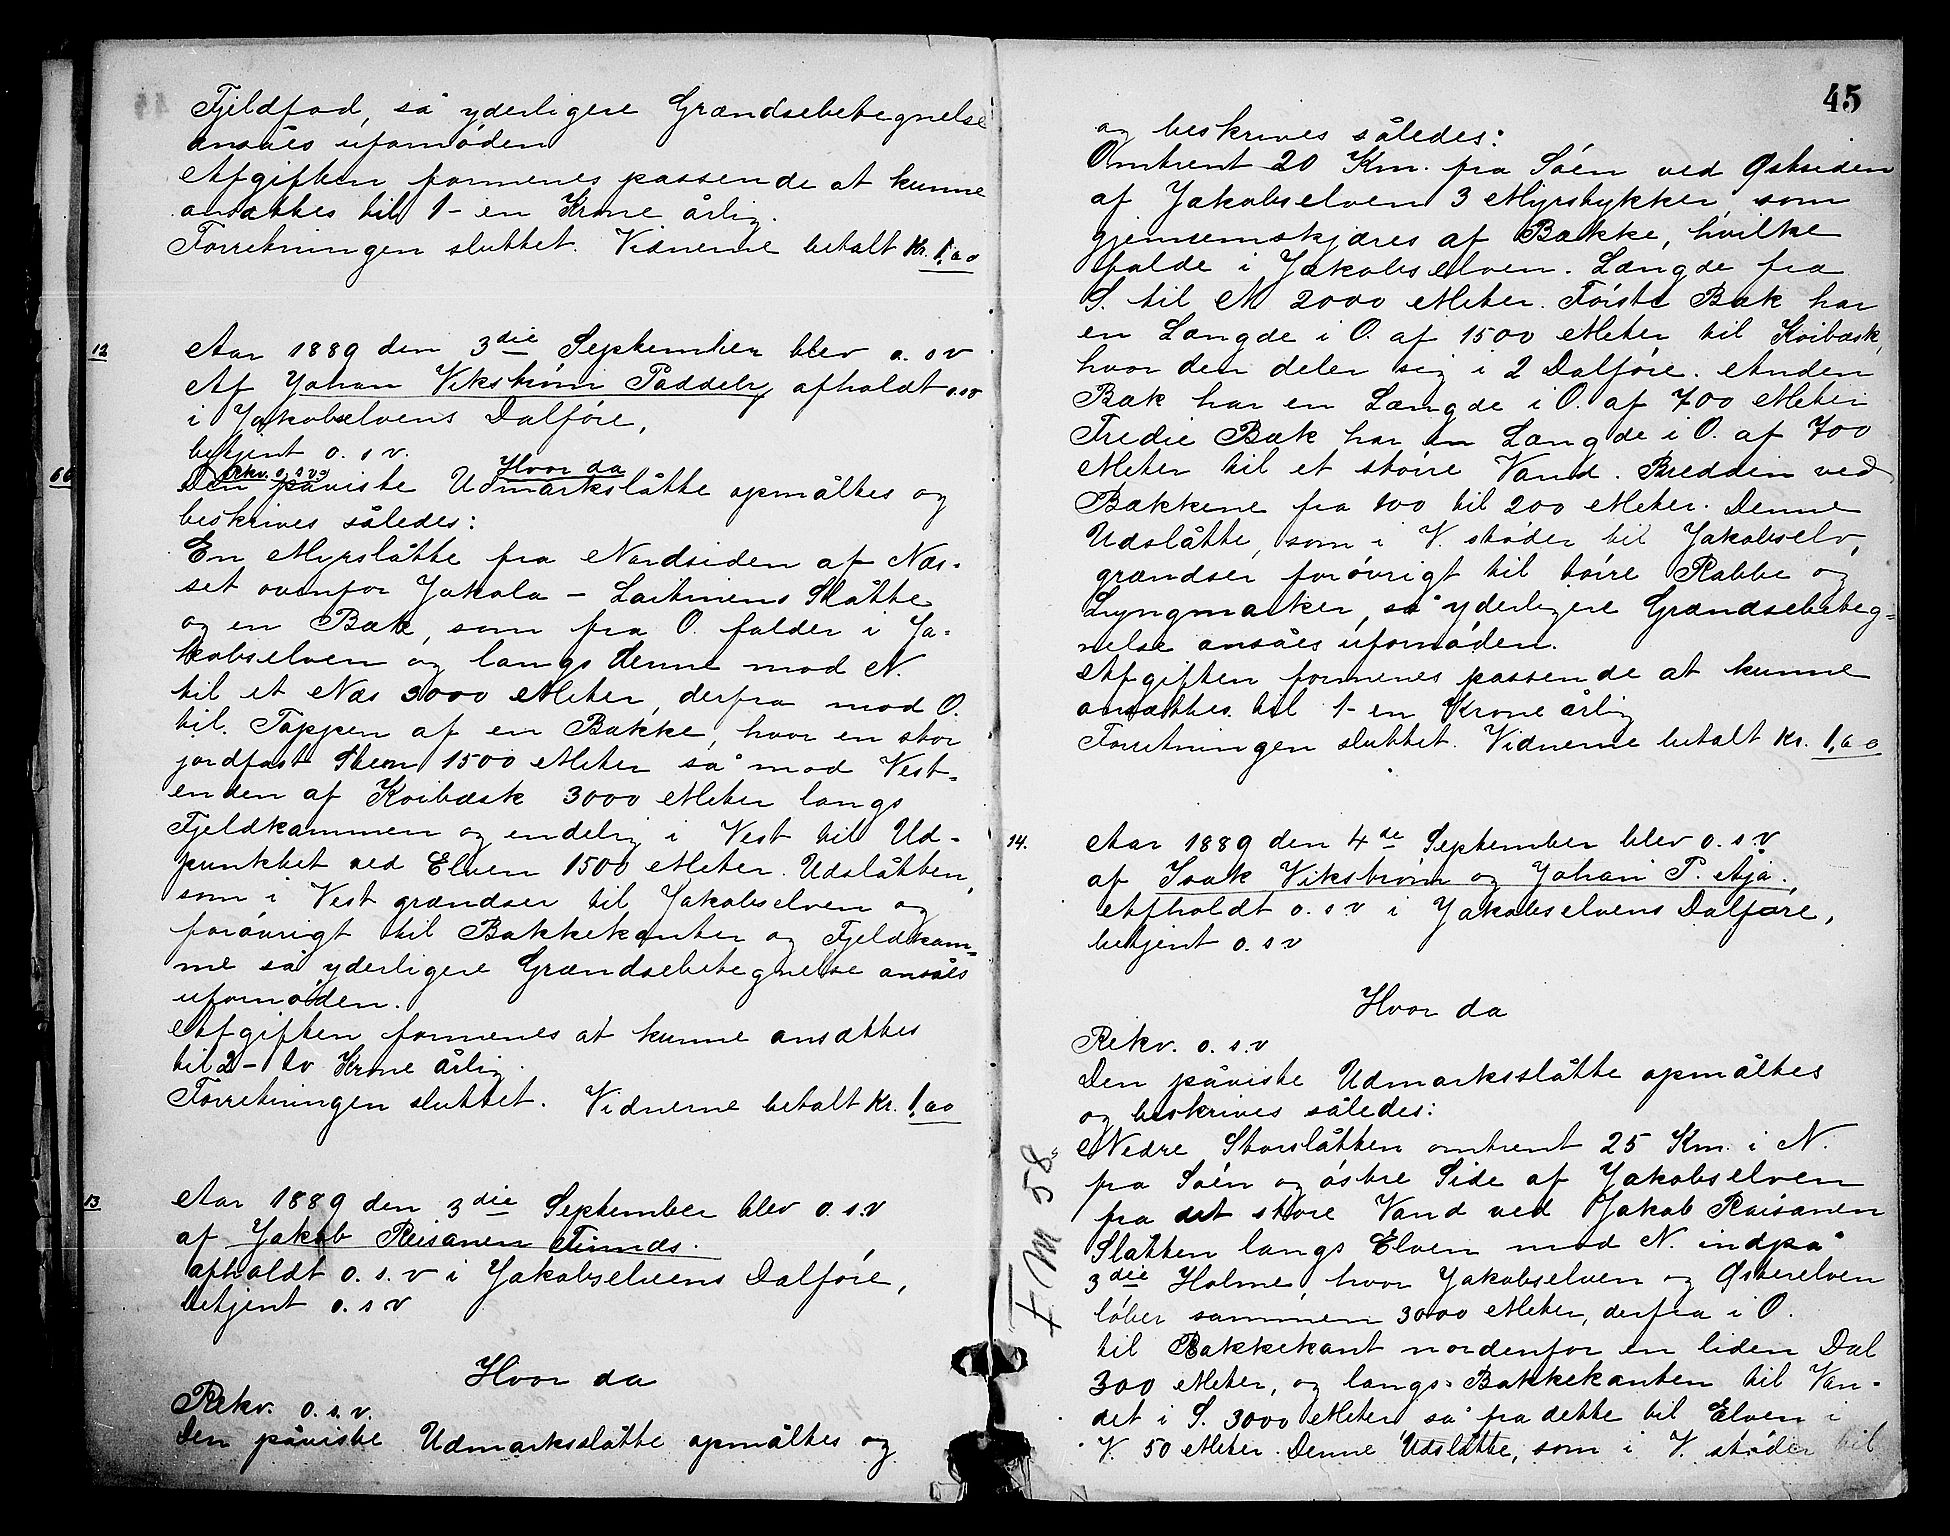 Fjeldfod, så yderligere Grændsebetegnelse
ansåes ufornøden
Afgiften formenes passende at kunne
ansættes til 1 - en Krone årlig.
Forretningen sluttet. Vidnerne betalt Kr. 1,60
12 Aar 1889 den 3die September blev o. s v
Af Johan Vikstrøm Paddely afholdt o.s.v
i Jakobselvens Dalføre,
betjent o. s v.
Rekv. o. s v. Hvor da
66 Den påviste Udmarkslåtte opmåltes og
beskrives således:
En Myrslåtte fra Nordsiden af Næs-
set ovenfor Jakola - Laitinens Slåtte
og en Bæk, som fra O. falder i Ja-
kobselven og langs denne mod N.
til et Næs 3000 Meter, derfra mod O.
til Toppen af en Bakke, hvor en stor
jordfast Sten 1500 Meter så mod Vest-
enden af Koibæsk 3000 Meter langs
Fjeldkammen og endelig i Vest til Ud-
punktet ved Elven 1500 Meter. Udslåtten,
som i Vest grændser til Jakobselven og
forøvrigt til Bakkekanter og Fjeldkam-
me så yderligere Grændsebetegnelse ansåes
ufornøden.
Afgiften formenes at kunne ansættes
til 2 - to Krone årlig.
Forretningen sluttet. Vidnerne betalt Kr. 1,60
13 Aar 1889 den 3die September blev o. s. v
af Jakob Reisanen Finnæs.
afholdt o. s. v i Jakobselvens Dalføre,
betjent o. s v
Hvor da
Rekv. o. s. v.
Den påviste Udmarksslåtte opmåltes og
45
og beskrives således:
Omtrent 20 Km. fra Søen ved Østsiden
af Jakobselven 3 Myrstykker som
gjennemskjæres af Bække, hvilke
falde i Jakobselven. Længde fra
S. til N 2000 Meter. Første Bæk har
en Længde i O. af 1500 Meter til Koibæsk,
hvor den deler sig i 2 Dalføre. Anden
Bæk har en Længde i O. af 700 Meter
Tredie Bæk har en Længde i O. af 700
Meter til et større Vand. Bredden ved
Bækkene fra 100 til 200 Meter. Denne
Udslåtte, som i V. støder til Jakobselv,
grændser forøvrigt til tørre Rabbe og
Lyngmarker, så yderligere Grændsebeteg-
nelse ansåes ufornøden.
Afgiften formenes passende at kunne
ansættes til 1 - en Krone årlig
Forretningen sluttet. Vidnerne betalt Kr. 1,60
14. Aar 1889 den 4de September blev o. s. v
af Isak Vikstrøm og Johan P. Aja.
Afholdt o. s v i Jakobselvens Dalføre,
betjent o. s v
Hvor da
Rekv. o. s. v
Den påviste Udmarksslåtte opmåltes
og beskrives således:
Nedre Storslåtten omtrent 25 Km. i N.
fra Søen og østre Side af Jakobselven
fra det store Vand ved Jakob Raisanen
Slåtten langs Elven mod N. indpå
3die Holme, hvor Jakobselven og Østerelven
løber sammen 3000 Meter, derfra i O.
til Bakkekant nordenfor en liden Dal
300 Meter, og langs Bakkekanten til Van-
det i S. 3000 Meter så fra dette til Elven i
V. 50 Meter. Denne Udslåtte, som i V. støder til
FM 58